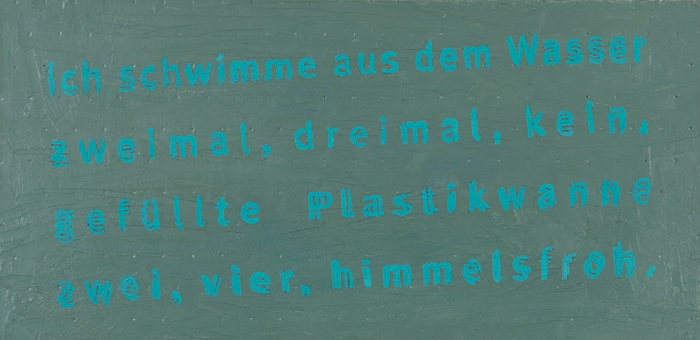 Ich schwimme aus dem Wasser
zweimal, dreimal, kein,
gefüllte Plastikwanne
zwei, vier, himmelsfroh.